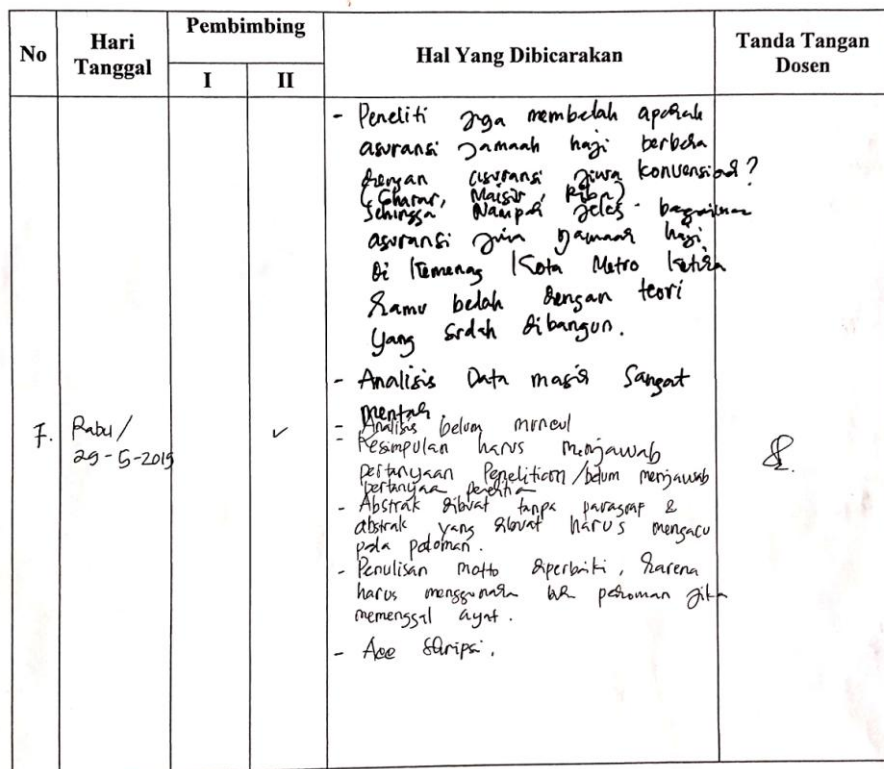 No
Hari
Tanggal
Pembimbing
I
II
Hal Yang Dibicarakan
Tanda Tangan
Dosen
7.
Rabu/
29-5-2019
✓
- Peneliti juga membelah apakah
asuransi jamaah haji berbeda
dengan asuransi jiwa konvensional?
(Gharar, Maisir, Riba)
Sehingga Nampak jelas bagaimana
asuransi jiwa jamaah haji
Di Kemenag Kota Metro ketika
kamu belah dengan teori
yang sudah dibangun.
- Analisis Data masih Sangat
mentah.
- Analisis belum muncul
- Kesimpulan harus menjawab
pertanyaan Penelitian/belum menjawab
pertanyaan peneliti
- Abstrak dibuat tanpa paragraf &
abstrak yang dibuat harus mengacu
pada pedoman.
- Penulisan motto diperbaiki, karena
harus menggunakan pedoman jika
memenggal ayat.
- Acc Skripsi.